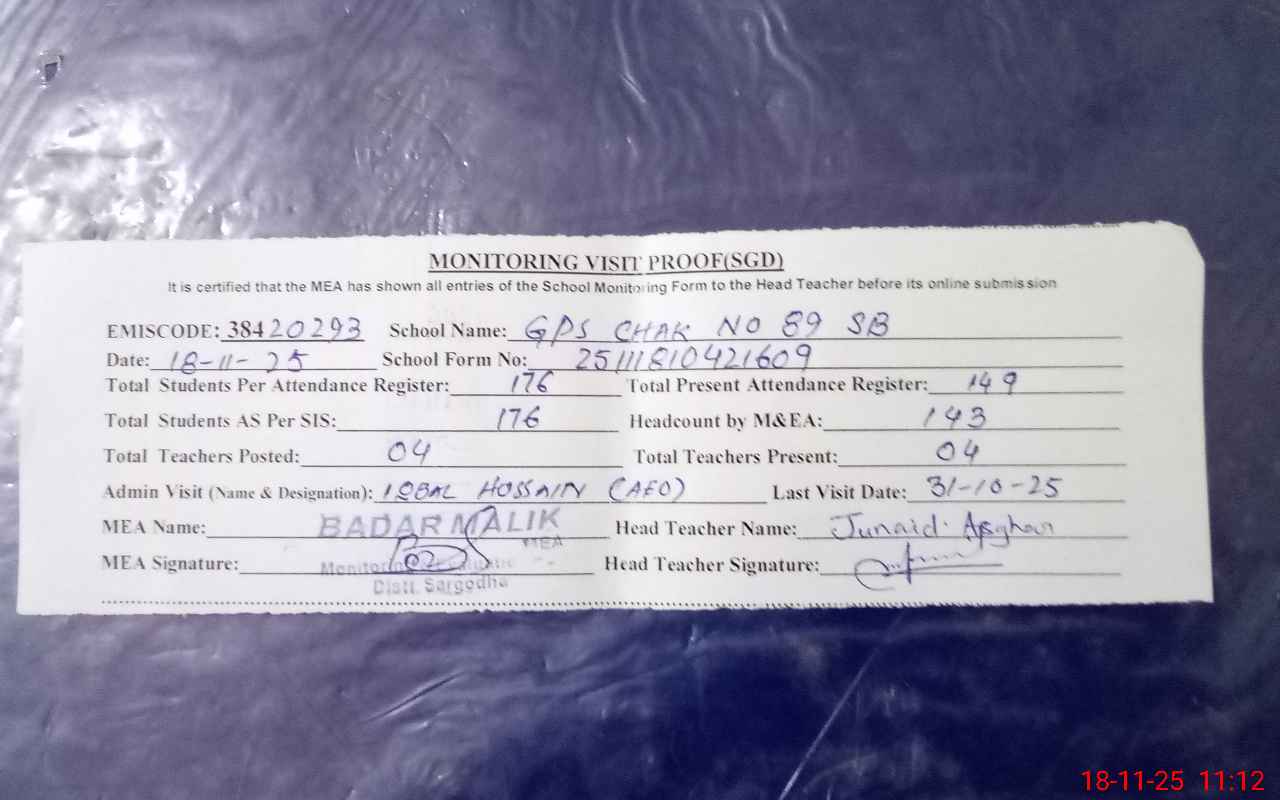 MONITORING VISIT PROOF(SGD)
It is certified that the MEA has shown all entries of the School Monitoring Form to the Head Teacher before its online submission
EMISCODE: 38420293 School Name: GPS CHAK NO 89 SB
Date: 18-11-25 School Form No: 25111810421609
Total Students Per Attendance Register: 176 Total Present Attendance Register: 149
Total Students AS Per SIS: 176 Headcount by M&EA: 143
Total Teachers Posted: 04 Total Teachers Present: 04
Admin Visit (Name & Designation): IQBAL HOSSAIN (AEO) Last Visit Date: 31-10-25
MEA Name: BADAR MALIK Head Teacher Name: Junaid Asghar
MEA
MEA Signature: Head Teacher Signature:
Distt. Sargodha
18-11-25 11:12